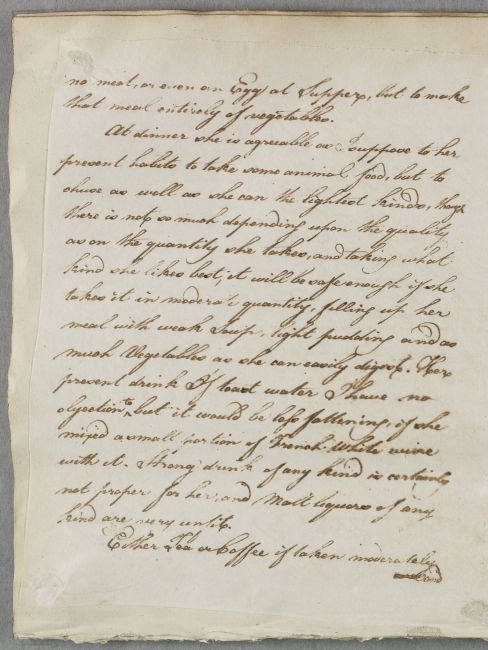 no meat, or even an Egg at Supper, but to make
that meal entirely of vegetables.
At dinner she is agreeable as I suppose to her
present habits to take some animal food, but to
chuse as well as she can the lightest kinds, tho
there is not so much depending upon the quality
as on the quantity she takes, and taking what
kind she likes best, it will be safe enough if she
takes it in moderate quantity, filling up her
meal with weak Soup, light pudding and as
much Vegetables as she can easily digest. Her
present drink of toast water I have no
objection to, but it would be less fattening, if she
mixed a small portion of French White wine
with it. Strong drink of any kind is certainly
not proper for her, and Malt liquors of any
kind are very unfit.
Either Tea or Coffee if taken moderately
and